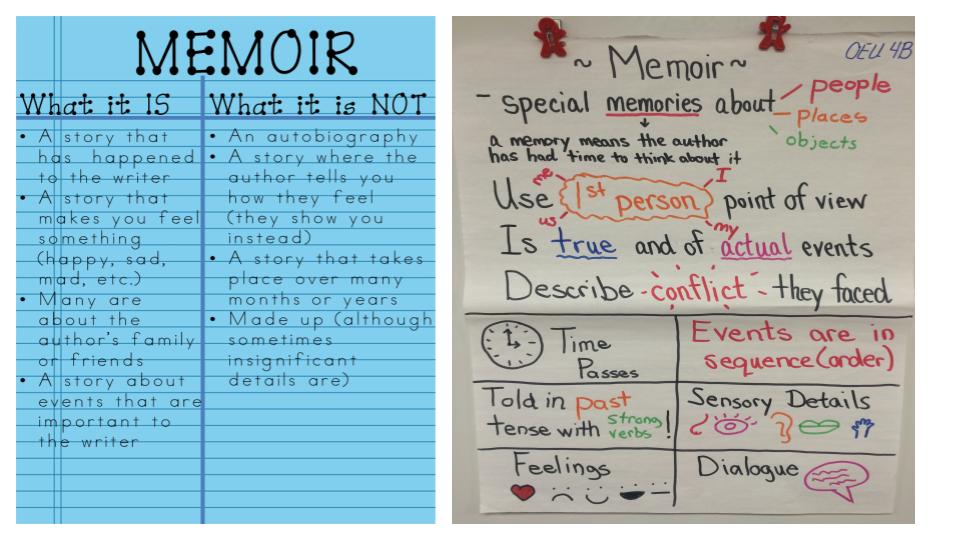 MEMOIR
What it IS
• A story that
has happened
to the writer
• A story that
makes you feel
something
(happy, sad,
mad, etc.)
• Many are
about the
author's family
or friends
• A story about
events that are
important to
the writer
What it is NOT
• An autobiography
• A story where the
author tells you
how they feel
(they show you
instead)
• A story that takes
place over many
months or years
• Made up (although
sometimes
insignificant
details are)
OEU 4B
~ Memoir ~
- special memories about
people
places
objects
a memory means the author
has had time to think about it
me
I
Use 1st person point of view
us
my
Is true and of actual events
Describe conflict they faced
Time
Passes
Events are in
sequence (order)
Told in past
tense with strong verbs!
Sensory Details
Feelings
Dialogue